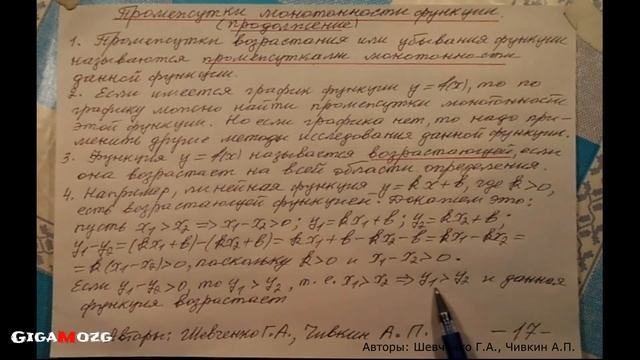 Промежутки монотонности функции
(продолжение)
1. Промежутки возрастания или убывания функции
называются промежутками монотонности
данной функции.
2. Если имеется график функции y = f(x), то по
графику можно найти промежутки монотонности
этой функции. Но если графика нет, то надо при-
менить другие методы исследования данной функции.
3. Функция y = f(x) называется возрастающей, если
она возрастает на всей области определения.
4. Например, линейная функция y = kx + b, где k > 0,
есть возрастающей функцией. Докажем это:
пусть x₁ > x₂ => x₁ - x₂ > 0; y₁ = kx₁ + b; y₂ = kx₂ + b;
y₁ - y₂ = (kx₁ + b) - (kx₂ + b) = kx₁ + b - kx₂ - b = kx₁ - kx₂ =
= k(x₁ - x₂) > 0, поскольку k > 0 и x₁ - x₂ > 0.
Если y₁ - y₂ > 0, то y₁ > y₂, т.е. x₁ > x₂ => y₁ > y₂ и данная
функция возрастает
Авторы: Шевченко Г.А., Чивкин А.П. -17-
Авторы: Шевченко Г.А., Чивкин А.П.
GIGAMOZG